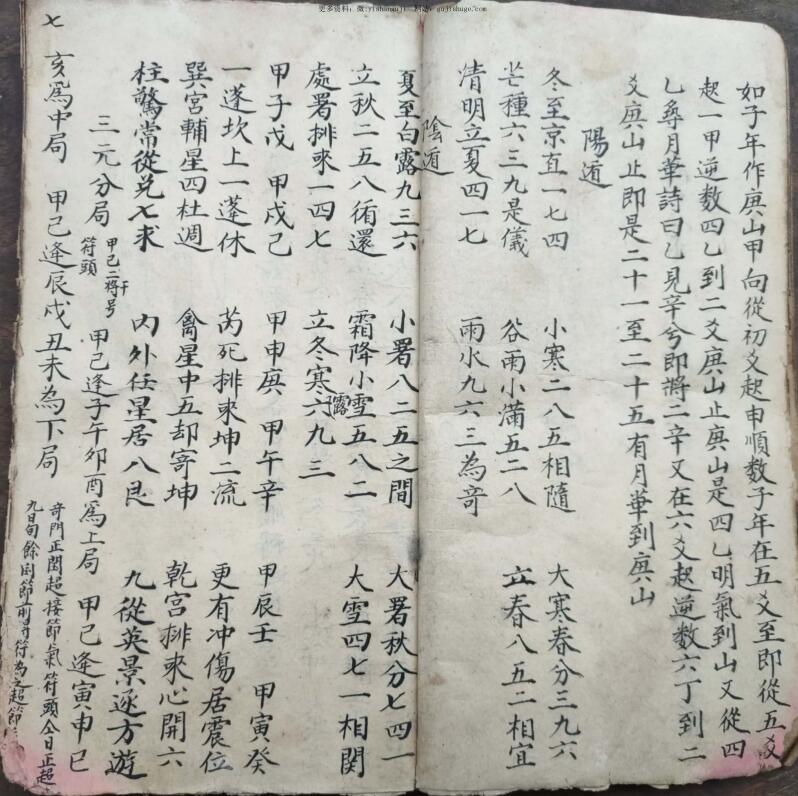 更多资料：微:yishanguji，网站：gujishuge.com
如子年作庚山甲向從初爻起申順数子年在五爻至即從五爻
起一甲逆数四乙到二爻庚山止庚山是四乙明氣到山又從四
乙尋月華詩曰乙見辛兮即將二辛又在六爻起逆数六丁到二
爻庚山止即是二十一至二十五有月華到庚山
陽遁
冬至京直一七四 小寒二八五相隨 大寒春分三九六
芒種六三九是儀 谷雨小滿五二八 立春八五二相宜
清明立夏四一七 雨水九六三為奇
陰遁
夏至白露九三六 小署八二五之間 大署秋分七四一
立秋二五八循還 霜降小雪五八二 大雪四七一相関
處署排來一四七 立冬寒露六九三
甲子戊 甲戌己 甲申庚 甲午辛 甲辰壬 甲寅癸
一蓬坎上一蓬休 芮死排來坤二流 更有冲傷居震位
巽宮輔星四杜週 禽星中五却寄坤 乾宮排來心開六
柱驚常從兑七求 内外任星居八艮 九從英景逐方遊
三元分局 甲己二將干号符頭 甲己逢子午卯酉為上局 甲己逢寅申巳
亥為中局 甲己逢辰戌丑未為下局
奇門正閏超接節氣符頭仝日正超
九日旬餘
七